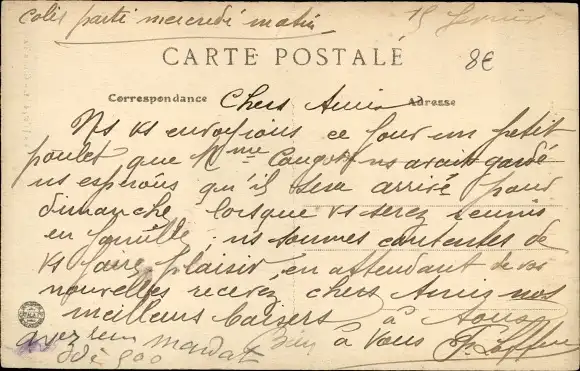 colis parti mercredi matin 15 février
CARTE POSTALE 8€
Correspondance Chers Amis Adresse
Ns vs envoyons ce jour un petit
poulet que Mme ns avait gardé
ns espérons qu'il sera arrivé pour
dimanche, lorsque vs serez réunis
en famille; ns sommes contentes de
vs faire plaisir, en attendant de vos
nouvelles recevez chers Amis nos
meilleurs baisers à tous
Bien à vous
avez mandat